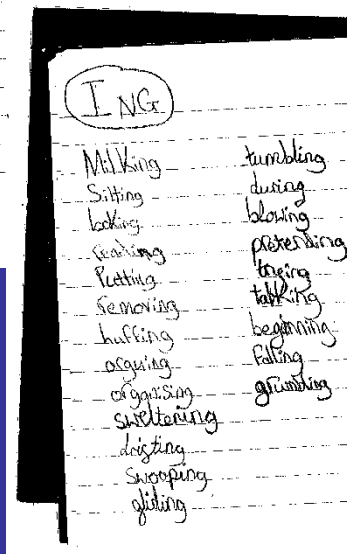 ING
Milking
Sitting
looking
reading
Putting
removing
huffing
arguing
organising
sweltering
drifting
swooping
gliding
tumbling
during
blowing
pretending
talking
beginning
falling